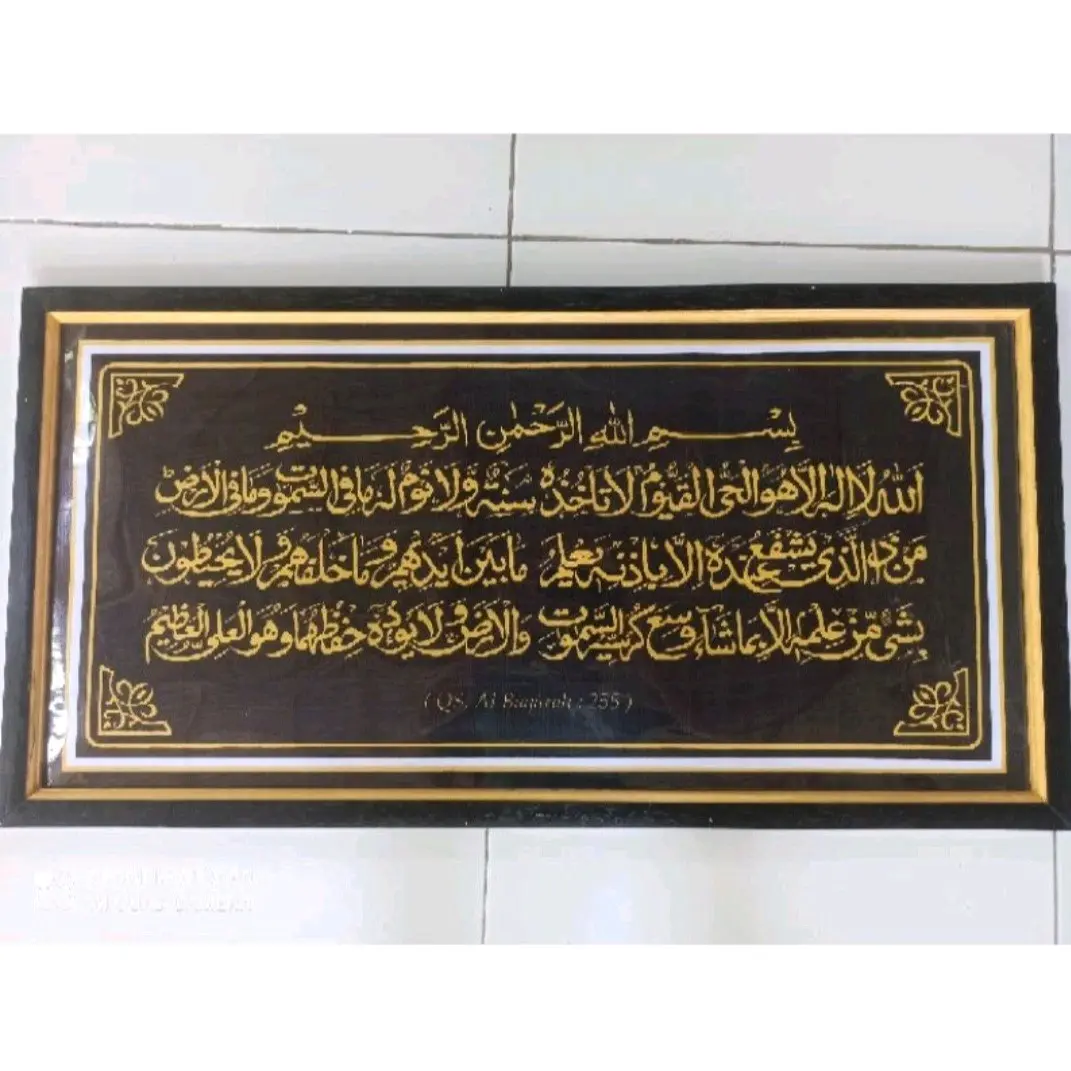 بِسْمِ اللهِ الرَّحْمٰنِ الرَّحِيْمِ
اَللهُ لَا اِلٰهَ اِلَّا هُوَ الْحَيُّ الْقَيُّوْمُ لَا تَأْخُذُهٗ سِنَةٌ وَّلَا نَوْمٌ لَهٗ مَا فِى السَّمٰوٰتِ وَمَا فِى الْاَرْضِ
مَنْ ذَا الَّذِيْ يَشْفَعُ عِنْدَهٗ اِلَّا بِاِذْنِهٖ يَعْلَمُ مَا بَيْنَ اَيْدِيْهِمْ وَمَا خَلْفَهُمْ وَلَا يُحِيْطُوْنَ
بِشَيْءٍ مِّنْ عِلْمِهٖ اِلَّا بِمَا شَاۤءَ وَسِعَ كُرْسِيُّهُ السَّمٰوٰتِ وَالْاَرْضَ وَلَا يَـُٔوْدُهٗ حِفْظُهُمَا وَهُوَ الْعَلِيُّ الْعَظِيْمُ
( QS. Al Baqarah : 255 )